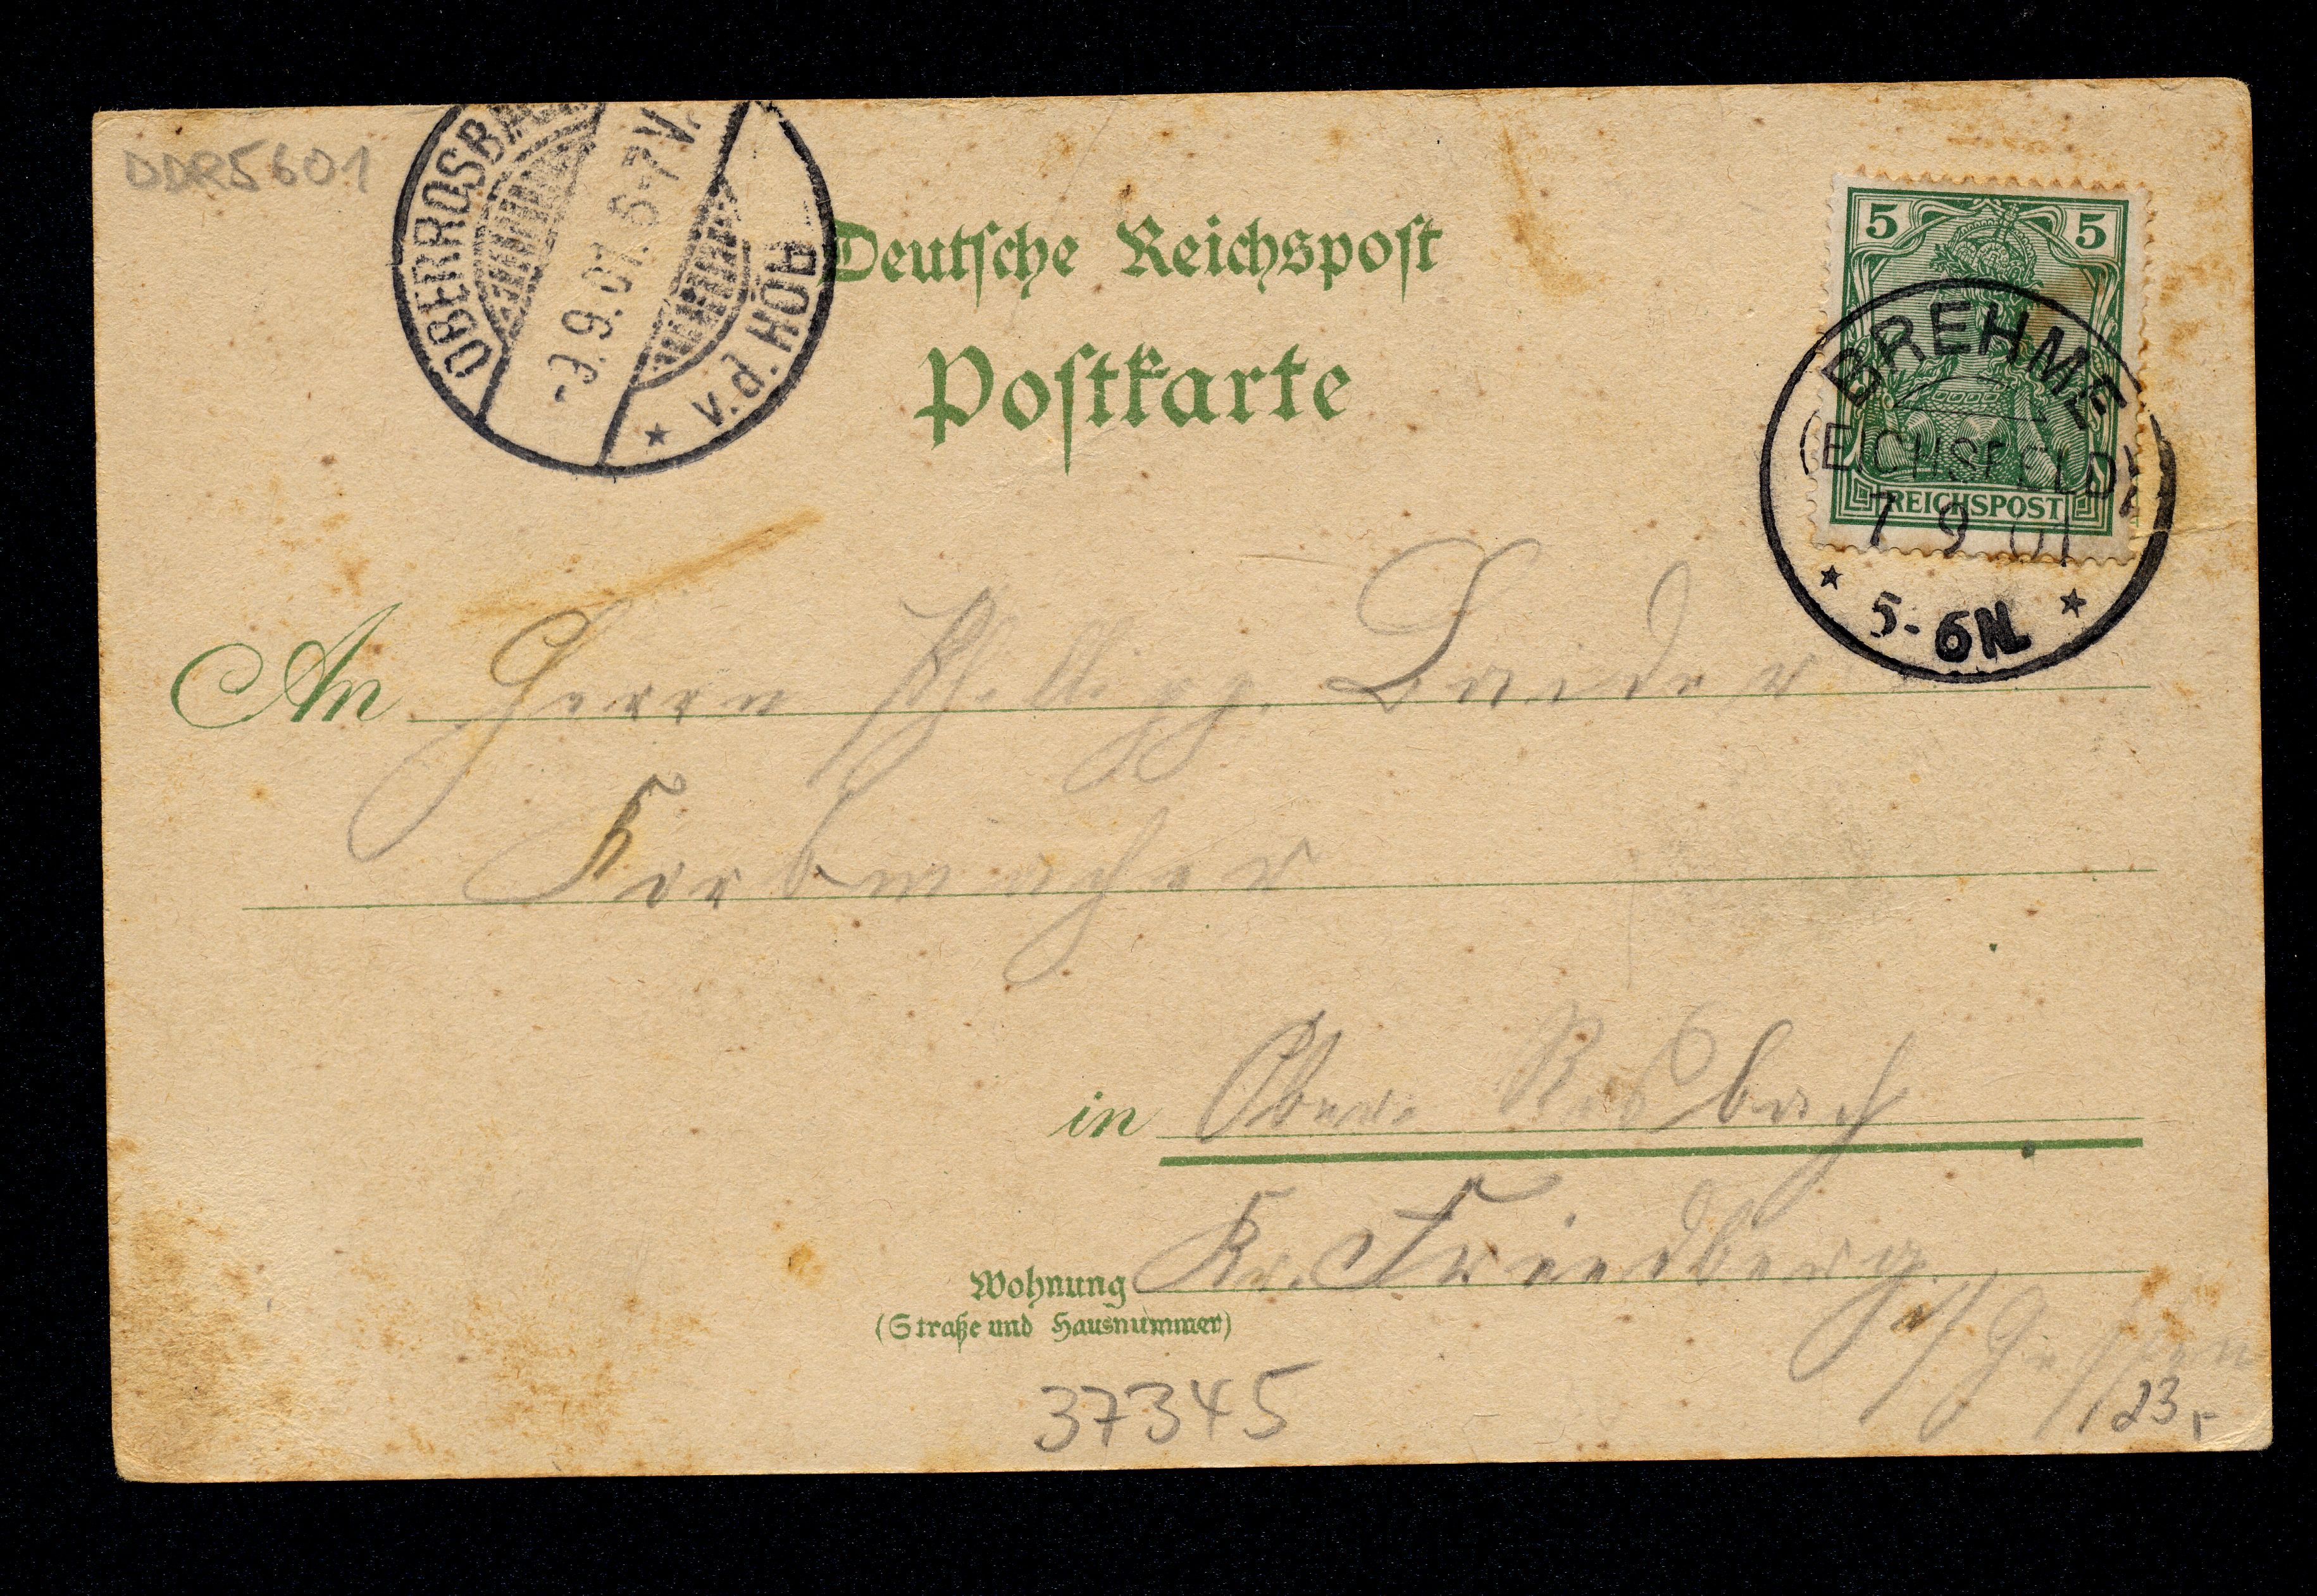 DDR5601
OBERROSBA
-9.9.01.6-7V.
v.d. HÖH
Deutsche Reichspost
Postkarte
5 5
REICHSPOST
BREHME
(EICHSFELD)
7 9 01
5-6N.
An Herrn
Korbmacher
in Ober Rosbach
Kr. Friedberg
Wohnung
(Straße und Hausnummer)
i/ Hessen
37345
123,-